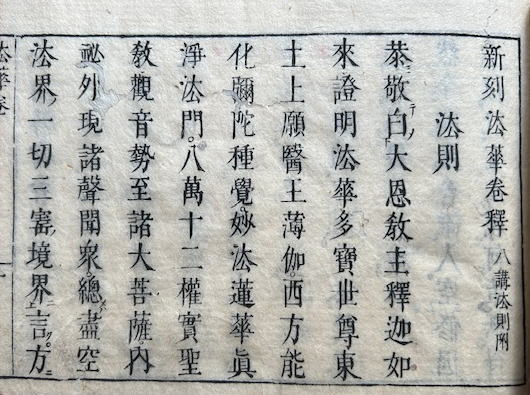 新刻法華卷釋 八講法則附
法則
恭敬白大恩敎主釋迦如
來證明法華多寶世尊東
土上願醫王薄伽。西方能
化彌陀種覺。妙法蓮華眞
淨法門。八萬十二權實聖
敎觀音勢至諸大菩薩。內
祕外現諸聲聞衆。總盡空
法界一切三寶境界言。方